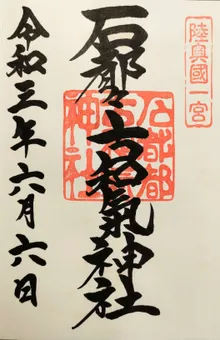 陸奥國一宮
石都々古和氣神社
石都都
神社
令和三年六月六日